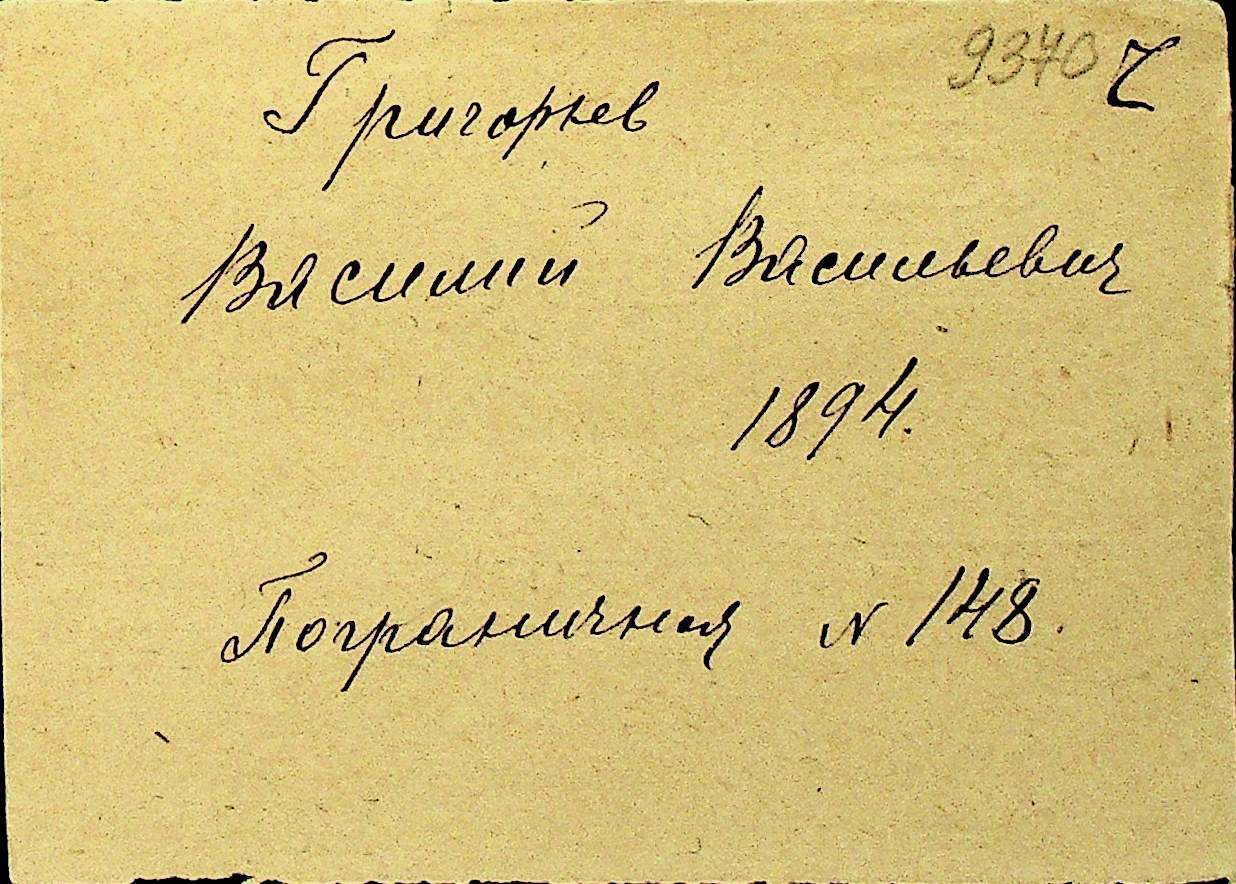 9370
Григорьев
Василий Васильевич
1894.
Пограничная N 148.